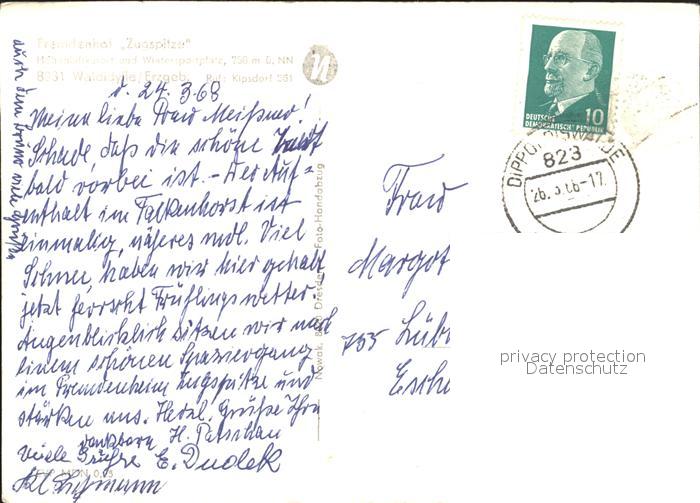 Fremdenhof „Zugspitze“
Höhenluftkurort und Wintersportplatz, 750 m ü. NN
8231 Waldidylle/Erzgeb. Ruf: Kipsdorf 361
d. 24.3.68
Meine liebe Frau Meißner!
Schade, daß die schöne
bald vorbei ist. – Der Auf=
enthalt im Falkenhorst ist
einmalig, näheres mdl. Viel
Schnee haben wir hier gehabt
jetzt herrscht Frühlingswetter.
Augenblicklich sitzen wir nach
einem schönen Spaziergang
im Fremdenheim Zugspitze und
stärken uns. Herzl. Grüße Ihre
dankbare H.
viele Grüße E. Dudek
DEUTSCHE
DEMOKRATISCHE REPUBLIK
10
DIPPOLDISWALDE
823
26.3.68-17
Frau
Margot
755 Lüb
Esche
Nowak, 8020 Dresden Foto-Handabzug
MDN 0,25
privacy protection
Datenschutz